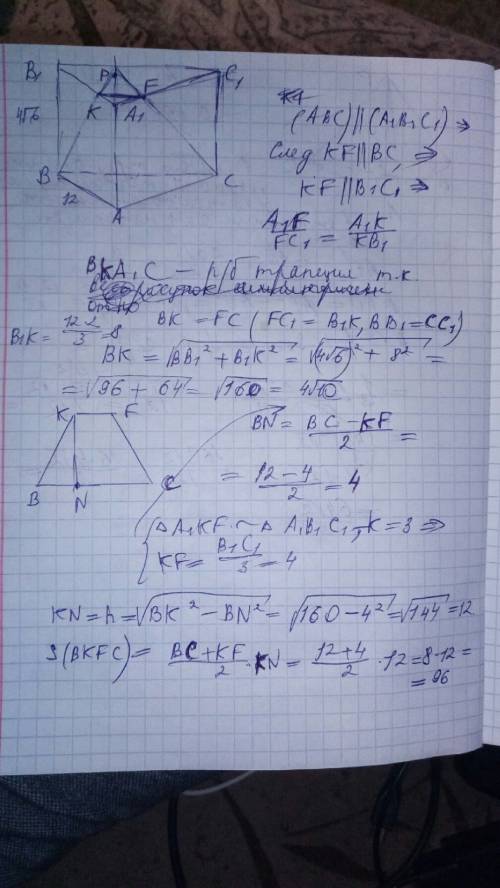 B₁ P F C₁
K A₁
4√6
B C
12
A
(ABC)||(A₁B₁C₁) ⇒
След KF||BC, ⇒
KF||B₁C₁ ⇒
A₁F/FC₁ = A₁K/KB₁
т.к.
B₁K = 12·2/3 = 8
BK = FC (FC₁ = B₁K, BB₁ = CC₁)
BK = √(BB₁² + B₁K²) = √((4√6)² + 8²) =
= √(96 + 64) = √160 = 4√10
K F
B N C
BN = (BC − KF)/2 =
= (12 − 4)/2 = 4
△A₁KF ~ △A₁B₁C₁, K = 3 ⇒
KF = B₁C₁/3 = 4
KN = h = √(BK² − BN²) = √(160 − 4²) = √144 = 12
S(BKFC) = (BC + KF)/2 · KN = (12 + 4)/2 · 12 = 8·12 =
= 96